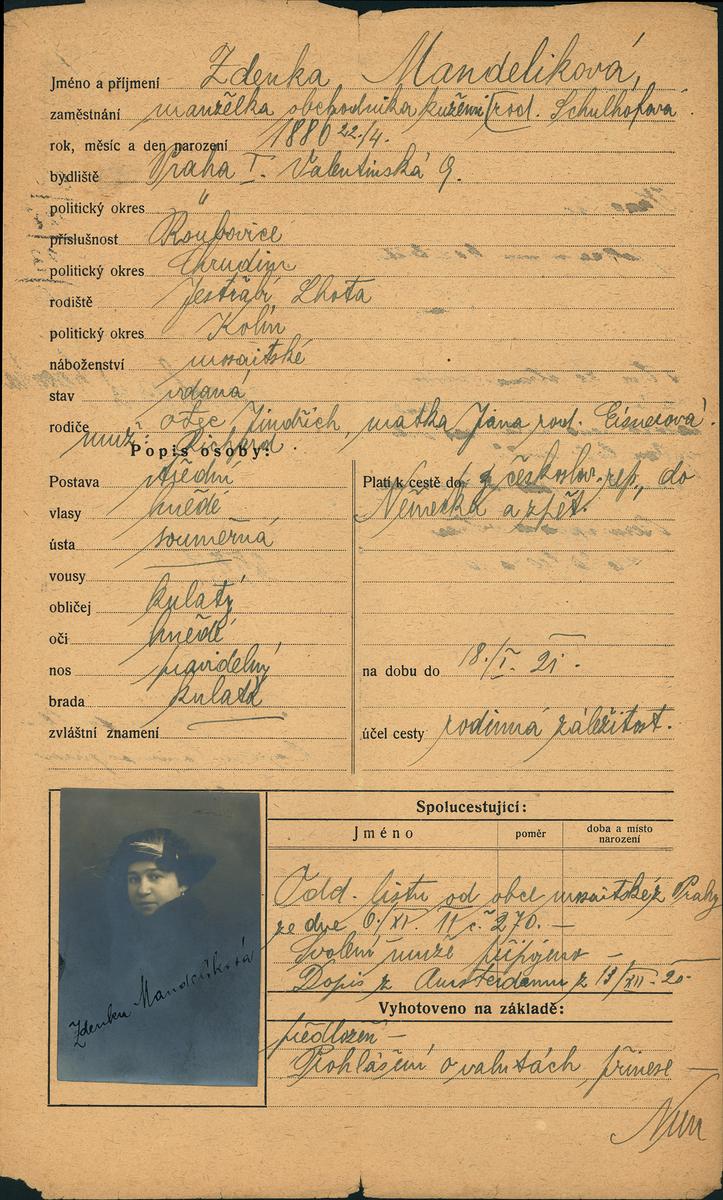 Jméno a příjmení Zdenka Mandelíková,
zaměstnání manželka obchodníka kůžemi rod. Schulhofová
rok, měsíc a den narození 1886 22./4.
bydliště Praha I. Valentinská 9.
politický okres "
příslušnost
politický okres Chrudim
rodiště Jestřabí Lhota
politický okres Kolín
náboženství mosaitské
stav vdaná
rodiče otec Jindřich, matka Jana rod. Eisnerová.
muž: Richard.
Popis osoby:
Postava střední
vlasy hnědé
ústa souměrná
vousy
obličej kulatý
oči hnědé
nos pravidelný
brada kulatá
zvláštní znamení
Platí k cestě do z českoslov. rep., do
Německa a zpět.
na dobu do 18./I. 21.
účel cesty rodinná záležitost.
Spolucestující:
Jméno poměr doba a místo narození
Odd. listu od obce mosaitské z Prahy
ze dne 6./XI. 11 č. 270. —
Svolení muže připojeno —
Dopis z Amsterdamu z 13/XII. 20
Vyhotoveno na základě:
předložen —
Prohlášení o valutách přinese —
Zdenka Mandelíková